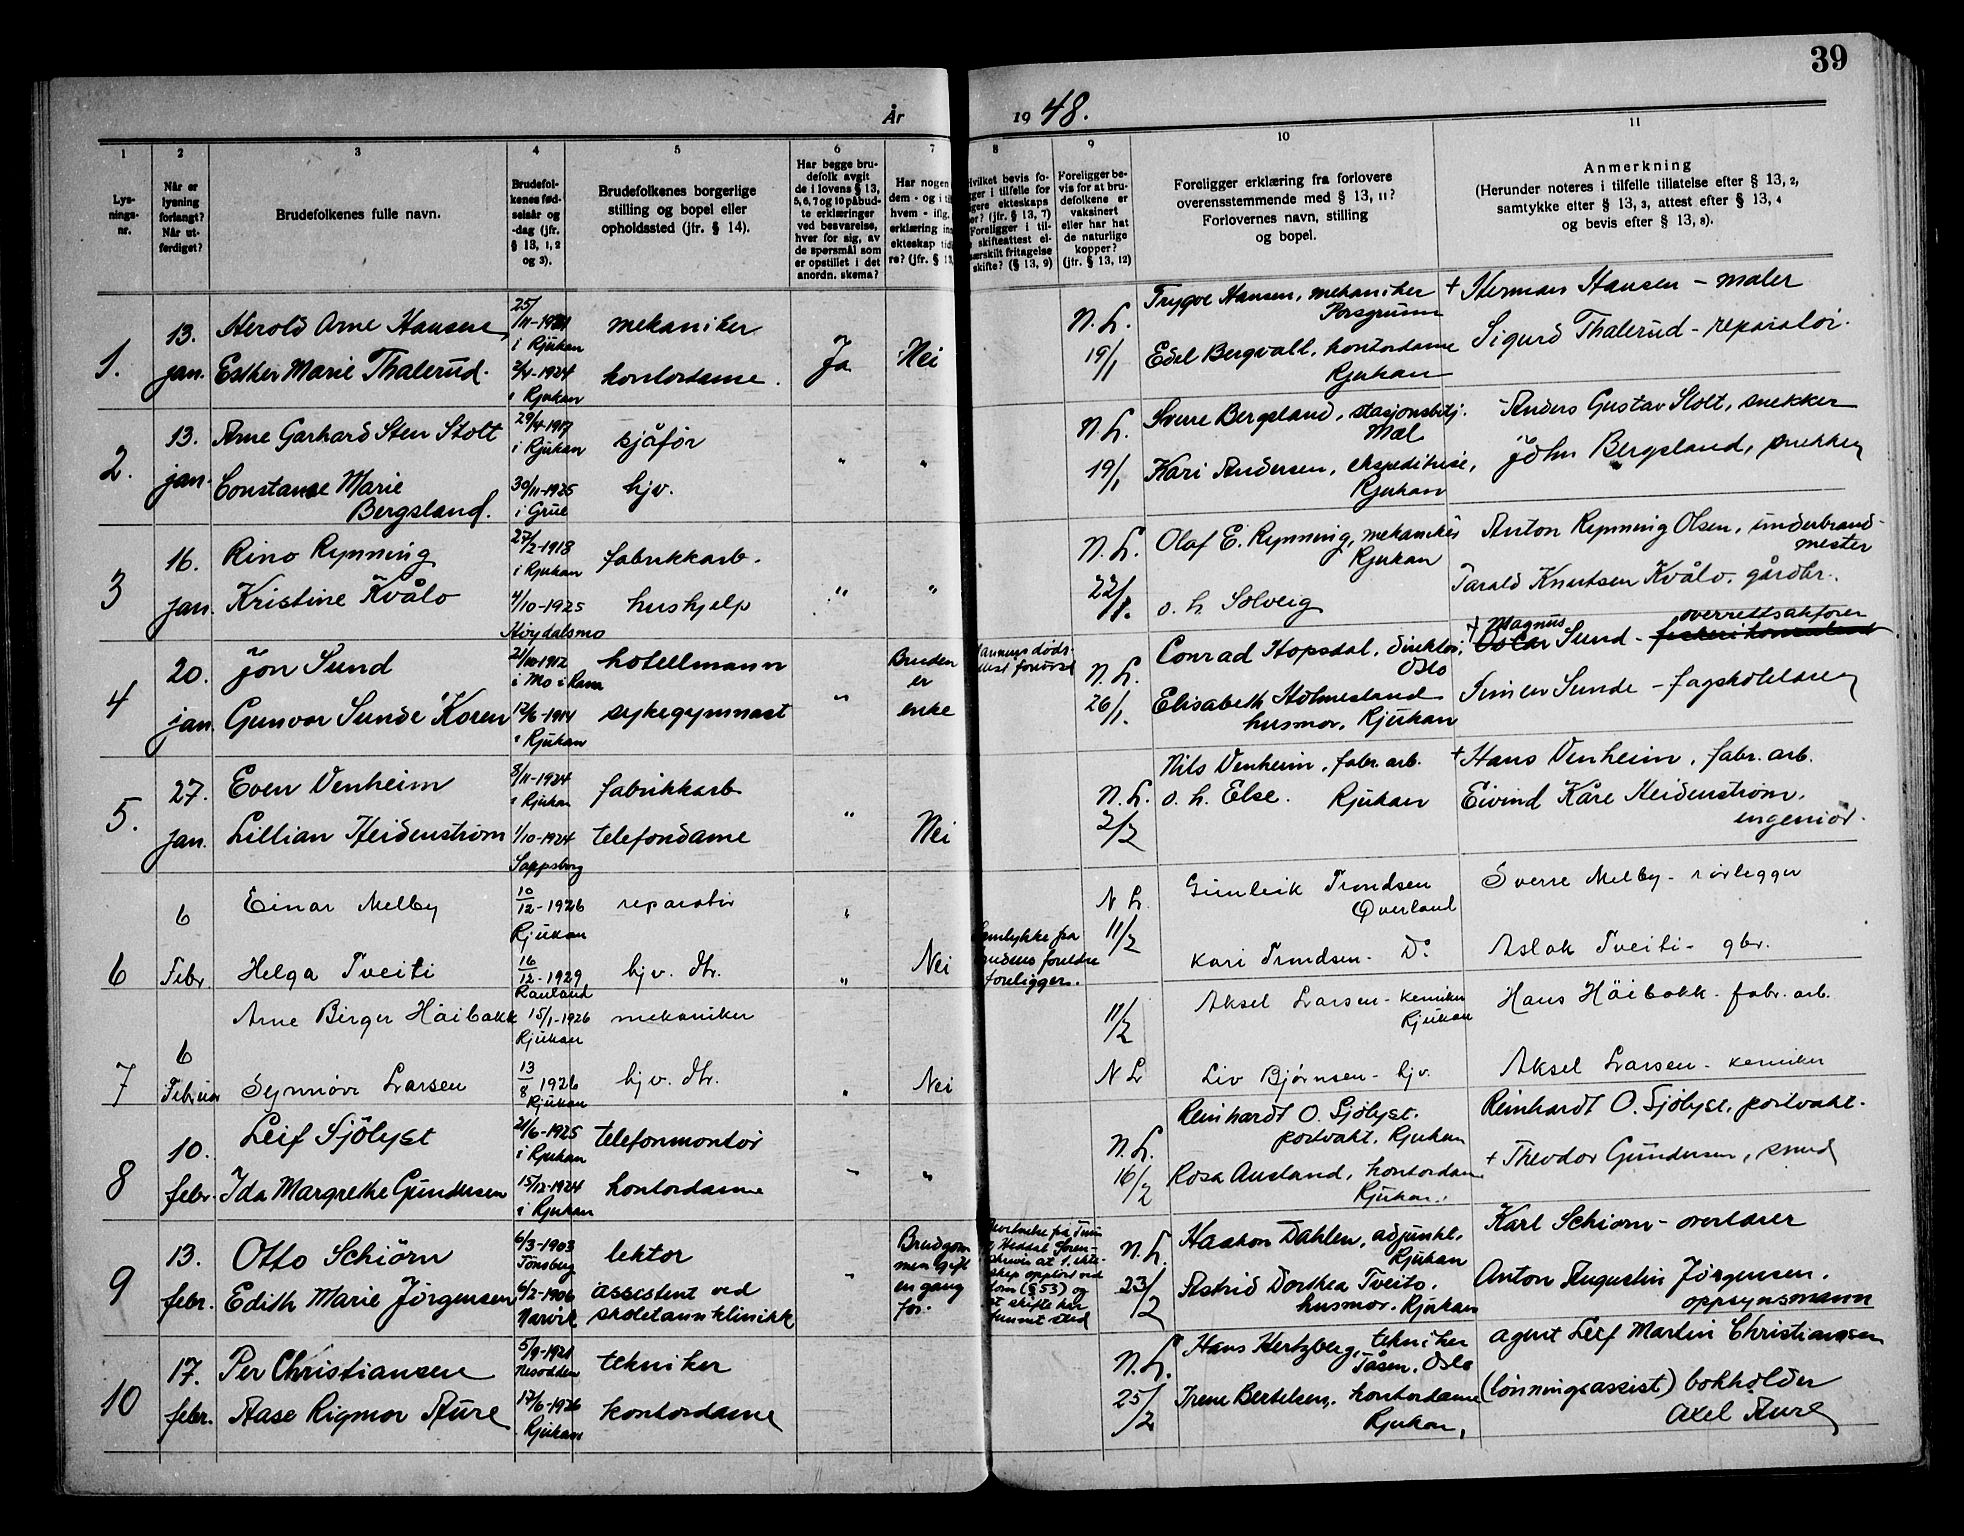 39
År 1948.
1
2
3
4
5
6
7
8
9
10
11
Lys-
nings-
nr.
Når er
lysning
forlangt?
Når ut-
ferdiget?
Brudefolkenes fulle navn.
Brudefol-
kenes fød-
selsår og
-dag (jfr.
§ 13, 1, 2
og 3).
Brudefolkenes borgerlige
stilling og bopel eller
opholdssted (jfr. § 14).
Har begge bru-
defolk avgit
de i lovens § 13,
5, 6, 7 og 10 påbud-
te erklæringer
ved besvarelse,
hver for sig, av
de spørsmål som
er opstillet i det
anordn. skema?
Har nogen
dem - og i til
hvem - iflg.
erklæring in
ekteskap tid
re? (jfr. § 13
Hvilket bevis fo-
gger i tilfelle for
gere ekteskaps
r? (jfr. § 13, 7)
Foreligger i til-
skifteattest el-
særskilt fritagelse
skifte? (§ 13, 9)
Foreligger be-
vis for at bru-
defolkene er
vaksinert
eller har hat
de naturlige
kopper?
(jfr. § 13, 12)
Foreligger erklæring fra forlovere
overensstemmende med § 13, 11?
Forlovernes navn, stilling
og bopel.
Anmerkning
(Herunder noteres i tilfelle tillatelse efter § 13, 2,
samtykke efter § 13, 3, attest efter § 13, 4
og bevis efter § 13, 8).
1.
13.
jan.
Herold Arne Hansen
Esther Marie Thalerud.
25/11-1921
i Rjukan
2/4-1924
i Rjukan
mekaniker
kontordame.
Ja
Nei
N. L.
19/1
Trygve Hansen, mekaniker
Porsgrunn
Edel Bergvall, kontordame
Rjukan
+ Herman Hansen - maler
Sigurd Thalerud - reparatør.
2.
13.
jan.
Arne Garhard Sten Stolt
Constanse Marie
Bergsland.
29/4-1917
i Rjukan
30/11-1925
i Grue
sjåfør
hjv.
"
"
N. L.
19/1
Sverre Bergsland, stasjonsbetj.
Mæl
Kari Andersen, ekspeditrise,
Rjukan
Anders Gustav Stolt, snekker
John Bergsland, snekker
3
16.
jan.
Rino Rynning
Kristine Kvålo
27/2-1918
i Rjukan
4/10-1925
Høydalsmo
fabrikkarb.
hushjelp
"
"
N. L.
22/1.
Olaf E. Rynning, mekaniker
Rjukan
o. h. Solveig
Anton Rynning Olsen, underbrand-
mester
Tarald Knutsen Kvålo. gårdbr.
4
20.
jan.
Jon Sund
Gunvor Sunde Koren
21/10-1912
i Mo i Rana
12/6-1914
i Rjukan
hotellmann
sykegymnast
"
Bruden
er
enke
N. L.
26/1.
Conrad Hopsdal, direktør,
Oslo
Elisabeth Holmesland
husmor, Rjukan
+ Magnus
Oscar Sund - overrettsakfører
Simen Sunde - fagskolelærer
5.
27.
jan.
Even Venheim
Lillian Heidenstrøm
8/11-1924
i Rjukan
1/10-1924
Sarpsborg
fabrikkarb
telefondame
"
Nei
N. L.
2/2
Nils Venheim, fabr. arb.
o. h. Else. Rjukan
+ Hans Venheim, fabr. arb.
Eivind Kåre Heidenstrøm,
ingeniør.
6
6
Febr.
Einar Melby
Helga Tveiti
10/12-1926
Rjukan
16/12-1929
Rauland
reparatør
hjv. dtr.
"
"
Nei
Samtykke fra
brudens foreldre
foreligger.
N L.
11/2
Gunleik Trondsen
Øverland
Kari Trondsen - Do
Sverre Melby - rørlegger
Aslak Tveiti - gbr.
7
6
Februar
Arne Birger Häibakk
Synnøve Larsen
15/1-1926
Rjukan
13/8 1926
Rjukan
mekaniker
hjv. dtr.
"
Nei
11/2
N L
Aksel Larsen - kemiker
Rjukan
Liv Bjørnsen - hjv.
Hans Häibakk - fabr. arb.
Aksel Larsen - kemiker
8
10.
febr.
Leif Sjölyst
Ida Margrethe Gundersen
21/6-1925
i Rjukan
15/12-1924
i Rjukan
telefonmontør
kontordame
"
"
N. L.
16/2
Reinhardt O. Sjölyst.
portvakt. Rjukan
Rosa Ausland, kontordame
Rjukan.
Reinhardt O. Sjölyst, portvakt.
+ Theodor Gundersen, smed
9
13.
febr.
Otto Schiörn
Edith Marie Jörgensen
6/3-1903
Tönsberg
6/2-1906
Narvik
lektor
assistent ved
skoletannklinikk
"
Brudgom
men gift
en gang
før.
N. L.
23/2
Haakon Dahlen, adjunkt,
Rjukan
Astrid Dorthea Tveito.
husmor. Rjukan
Karl Schiörn - overlærer
Anton Augustin Jörgensen.
oppsynsmann
10
17.
febr.
Per Christiansen
Aase Rigmor Aure
5/9-1921
Nesodden
17/6-1926
Rjukan
tekniker
kontordame
N. L.
25/2
Hans Hertzberg, tekniker
Tåsen, Oslo
Irene Bertelsen, kontordame
Rjukan,
agent Leif Martin Christiansen
(lønningsassist) bokholder
Axel Aure